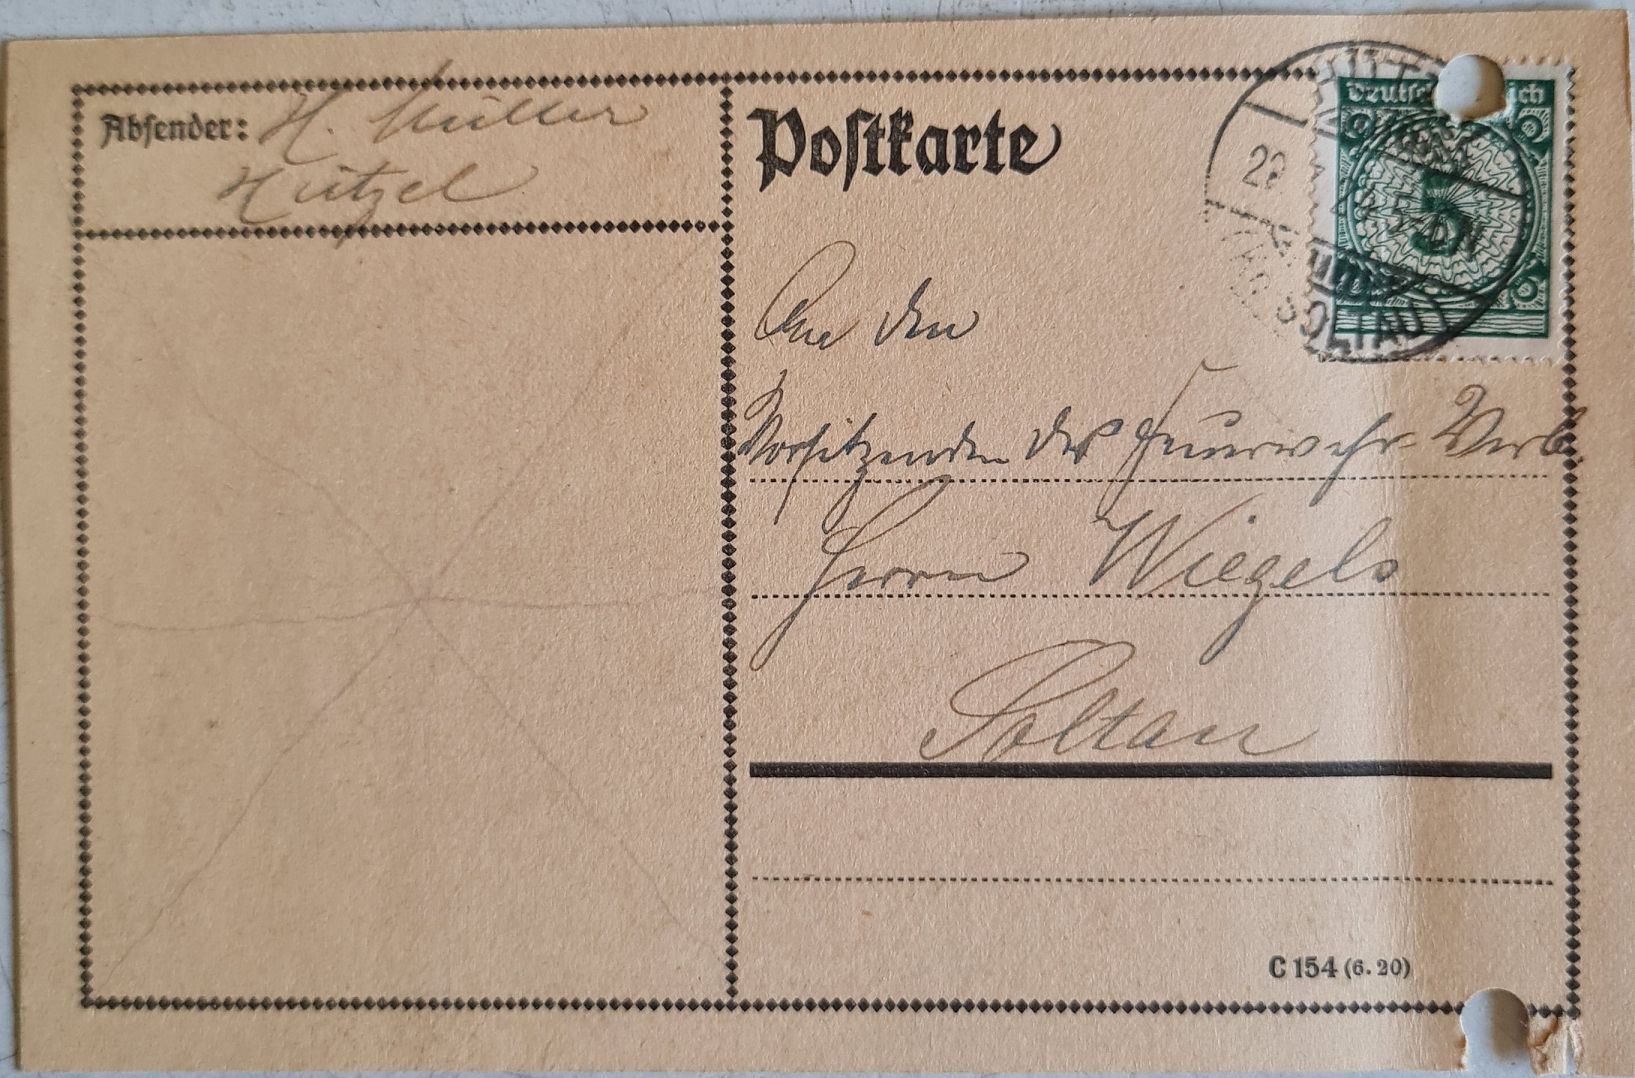 Absender: H. Müller
Hützel
Postkarte
Deutsches Reich
5
An den
Vorsitzenden des Feuerwehr-Verb.
Herrn Wiegels
Soltau
C 154 (6.20)